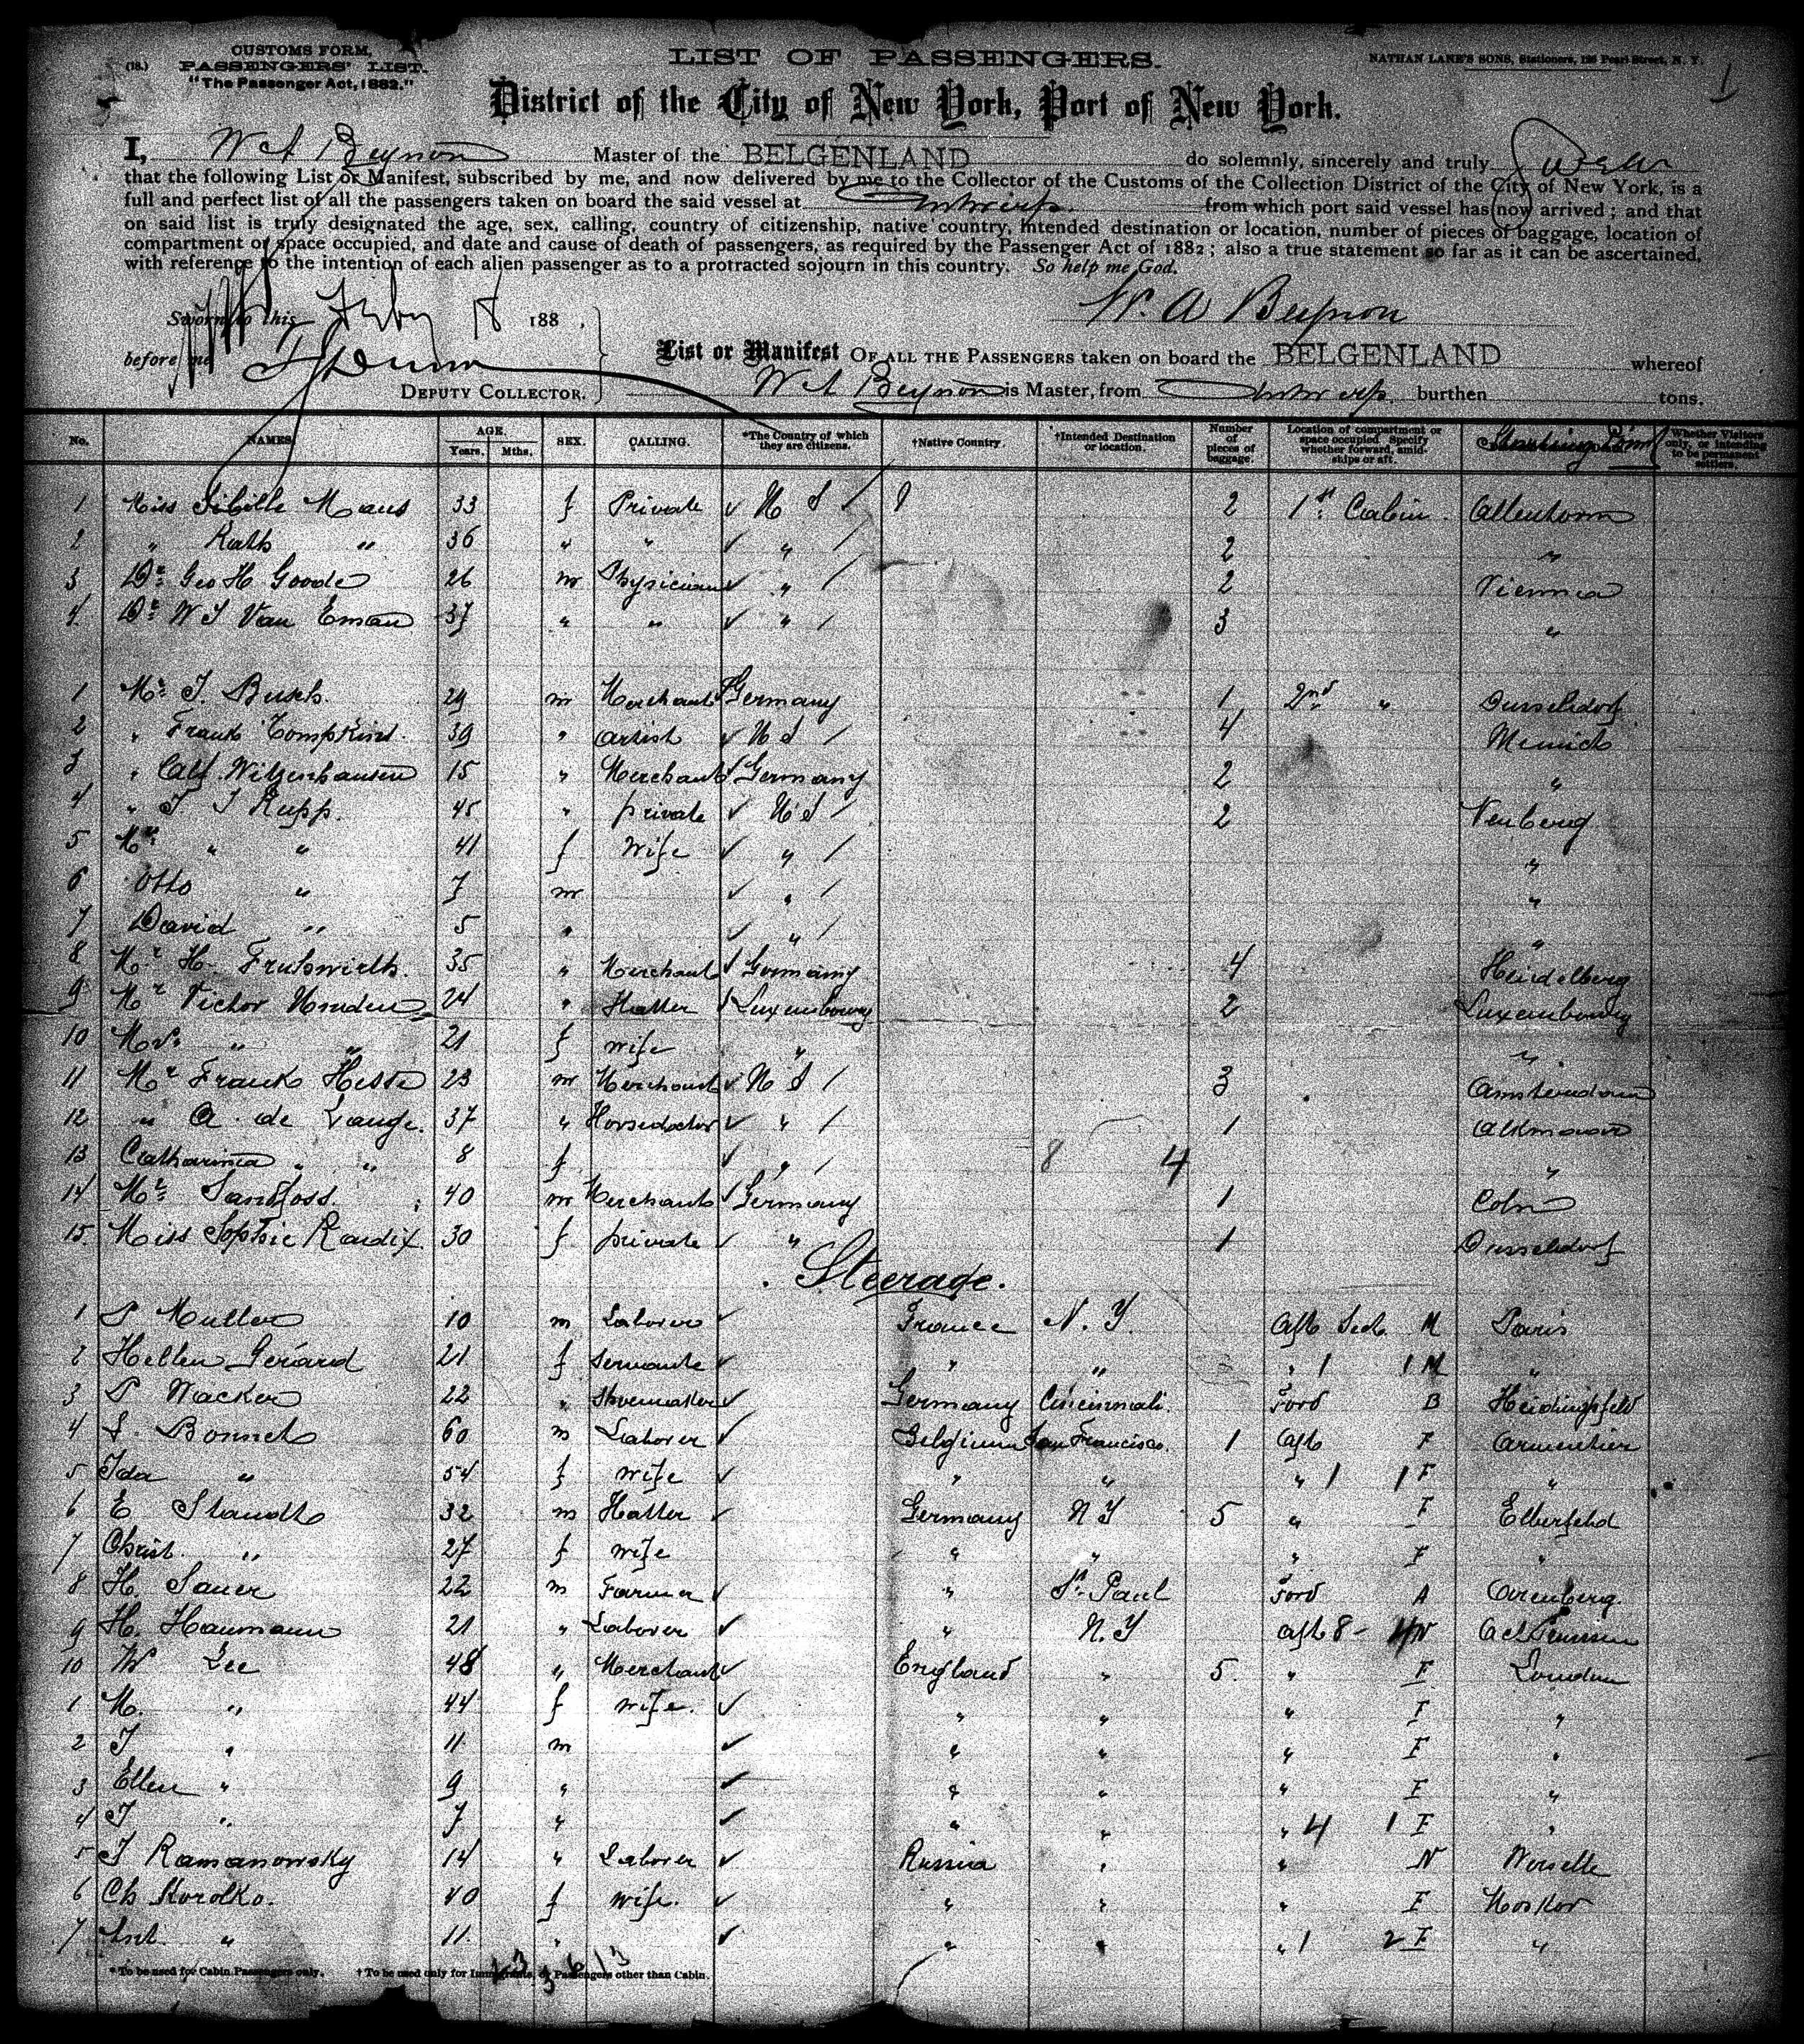 (18.)
CUSTOMS FORM,
PASSENGERS' LIST.
"The Passenger Act, 1882."
LIST OF PASSENGERS.
NATHAN LANE'S SONS, Stationers, 126 Pearl Street, N. Y.
1
District of the City of New York, Port of New York.
I, W A Beynon Master of the BELGENLAND do solemnly, sincerely and truly swear
that the following List or Manifest, subscribed by me, and now delivered by me to the Collector of the Customs of the Collection District of the City of New York, is a
full and perfect list of all the passengers taken on board the said vessel at Antwerp from which port said vessel has now arrived; and that
on said list is truly designated the age, sex, calling, country of citizenship, native country, intended destination or location, number of pieces of baggage, location of
compartment or space occupied, and date and cause of death of passengers, as required by the Passenger Act of 1882; also a true statement so far as it can be ascertained,
with reference to the intention of each alien passenger as to a protracted sojourn in this country. So help me God.
W. A Beynon
Sworn to this Feby 18 188 ,
before me
DEPUTY COLLECTOR.
List or Manifest OF ALL THE PASSENGERS taken on board the BELGENLAND whereof
W A Beynon is Master, from Antwerp burthen tons.
No. NAMES. AGE. Years. Mths. SEX. CALLING. *The Country of which they are citizens. †Native Country. †Intended Destination or location. Number of pieces of baggage. Location of compartment or space occupied. Specify whether forward, amidships or aft. Whether Visitors only, or intending to be permanent settlers.
1 Miss Sibille Maus 33 f Private U S 2 1st Cabin
2 " Kath " 36 " " " 2 "
3 Dr Geo H Goode 26 m Physician " 2 Vienna
4 Dr W S Van Eman 37 " " " 3 "
1 Mr J. Busch 29 m Merchant Germany 1 2nd " Dusseldorf
2 " Frank Tompkins 39 " artist U S 4 Munich
3 " Alf. Witzenhausen 15 " Merchant Germany 2 "
4 " J J Rupp. 45 " private U S 2
5 Mrs " " 41 f Wife " "
6 Otto " 7 m " "
7 David " 5 " " "
8 Mr H. Fruhwirth 35 " Merchant Germany 4 Heidelberg
9 Mr Victor 24 " Hatter Luxembourg 2 Luxembourg
10 Mrs " " 21 f wife " "
11 Mr Frank Hesse 23 m Merchant U S 3 Amsterdam
12 " A. de Lange. 37 " Horsedoctor " 1 Alkmaar
13 Catharina " " 8 f " 8 4 "
14 Mr Sandfoss 40 m Merchant Germany 1 Coln
15. Miss Sophie Radix 30 f private " 1 Dusseldorf
Steerage.
1 P Muller 10 m Laborer France N. Y. Aft Sect. M Paris
2 Hellen Gerard 21 f Servante " " " 1 1 M "
3 P Wacker 22 " Shoemaker Germany Cincinnati. Ford B Heidingsfeld
4 Bonnet 60 m Laborer Belgium San Francisco. 1 Aft F Armentier
5 Ida " 54 f wife " " " 1 1 F "
6 E Staudt 32 m Hatter Germany N Y 5 " F Elberfeld
7 Christ. " 27 f wife " " " F "
8 H. Sauer 22 m Farmer " St. Paul Ford A Arenberg.
9 H. Haumann 21 " Laborer " N. Y Aft 8 - 4 N
10 W Lee 48 " Merchant England " 5. " F London
1 M. " 44 f wife. " " " F "
2 J " 11 m " " " F "
3 Ellen " 9 " " " " F "
4 J " 7 " " " " 4 1 F "
5 J Ramanowsky 14 " Laborer Russia " " N
6 Ch Korolko. 40 f wife. " " " F Moskow
7 " 11 " " " " 1 2 F "
* To be used for Cabin Passengers only. † To be used only for Immigrants, or Passengers other than Cabin.